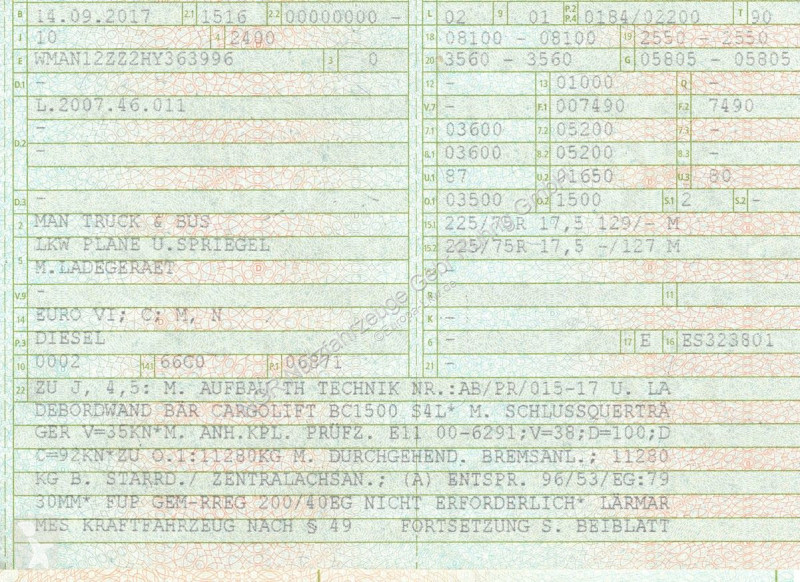 B 14.09.2017 2.1 1516 2.2 00000000 -
J 10 4 2400
E WMAN12ZZ2HY363996 3 0
D.1 -
L.2007.46.011
-
D.2 -
D.3 -
2 MAN TRUCK & BUS
LKW PLANE U.SPRIEGEL
5 M.LADEGERAET
V.9 -
14 EURO VI; C; M, N
P.3 DIESEL
10 0002 14.1 66C0 P.1 06871
L 02 9 01 P.2 P.4 0184/02200 T 90
18 08100 - 08100 19 2550 - 2550
20 3560 - 3560 G 05805 - 05805
12 - 13 01000 Q -
V.7 - F.1 007490 F.2 7490
7.1 03600 7.2 05200 7.3 -
8.1 03600 8.2 05200 8.3 -
U.1 87 U.2 01650 U.3 80
O.1 03500 O.2 1500 S.1 2 S.2 -
15.1 225/75R 17,5 129/- M
15.2 225/75R 17,5 -/127 M
-
R 11
K -
6 - 17 E 16 ES323801
21 -
22 ZU J, 4,5: M. AUFBAU TH TECHNIK NR.:AB/PR/015-17 U. LA
DEBORDWAND BÄR CARGOLIFT BC1500 S4L* M. SCHLUSSQUERTRÄ
GER V=35KN*M. ANH.KPL. PRÜFZ. E11 00-6291;V=38;D=100;D
C=92KN*ZU O.1:11280KG M. DURCHGEHEND. BREMSANL.; 11280
KG B. STARRD./ ZENTRALACHSAN.; (A) ENTSPR. 96/53/EG:79
30MM* FUP GEM-RREG 200/40EG NICHT ERFORDERLICH* LÄRMAR
MES KRAFTFAHRZEUG NACH § 49 FORTSETZUNG S. BEIBLATT